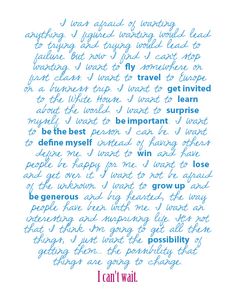 I was afraid of wanting
anything. I figured wanting would lead
to trying and trying would lead to
failure. But now I find I can't stop
wanting. I want to fly somewhere on
first class. I want to travel to Europe
on a business trip. I want to get invited
to the White House. I want to learn
about the world. I want to surprise
myself. I want to be important. I want to
be the best person I can be. I want
to define myself instead of having others
define me. I want to win and have
people be happy for me. I want to lose
and get over it. I want to not be afraid
of the unknown. I want to grow up and
be generous and big hearted, the way
people have been with me. I want an
interesting and surprising life. It's not
that I think I'm going to get all these
things, I just want the possibility of
getting them... the possibility that
things are going to change.
I can't wait.